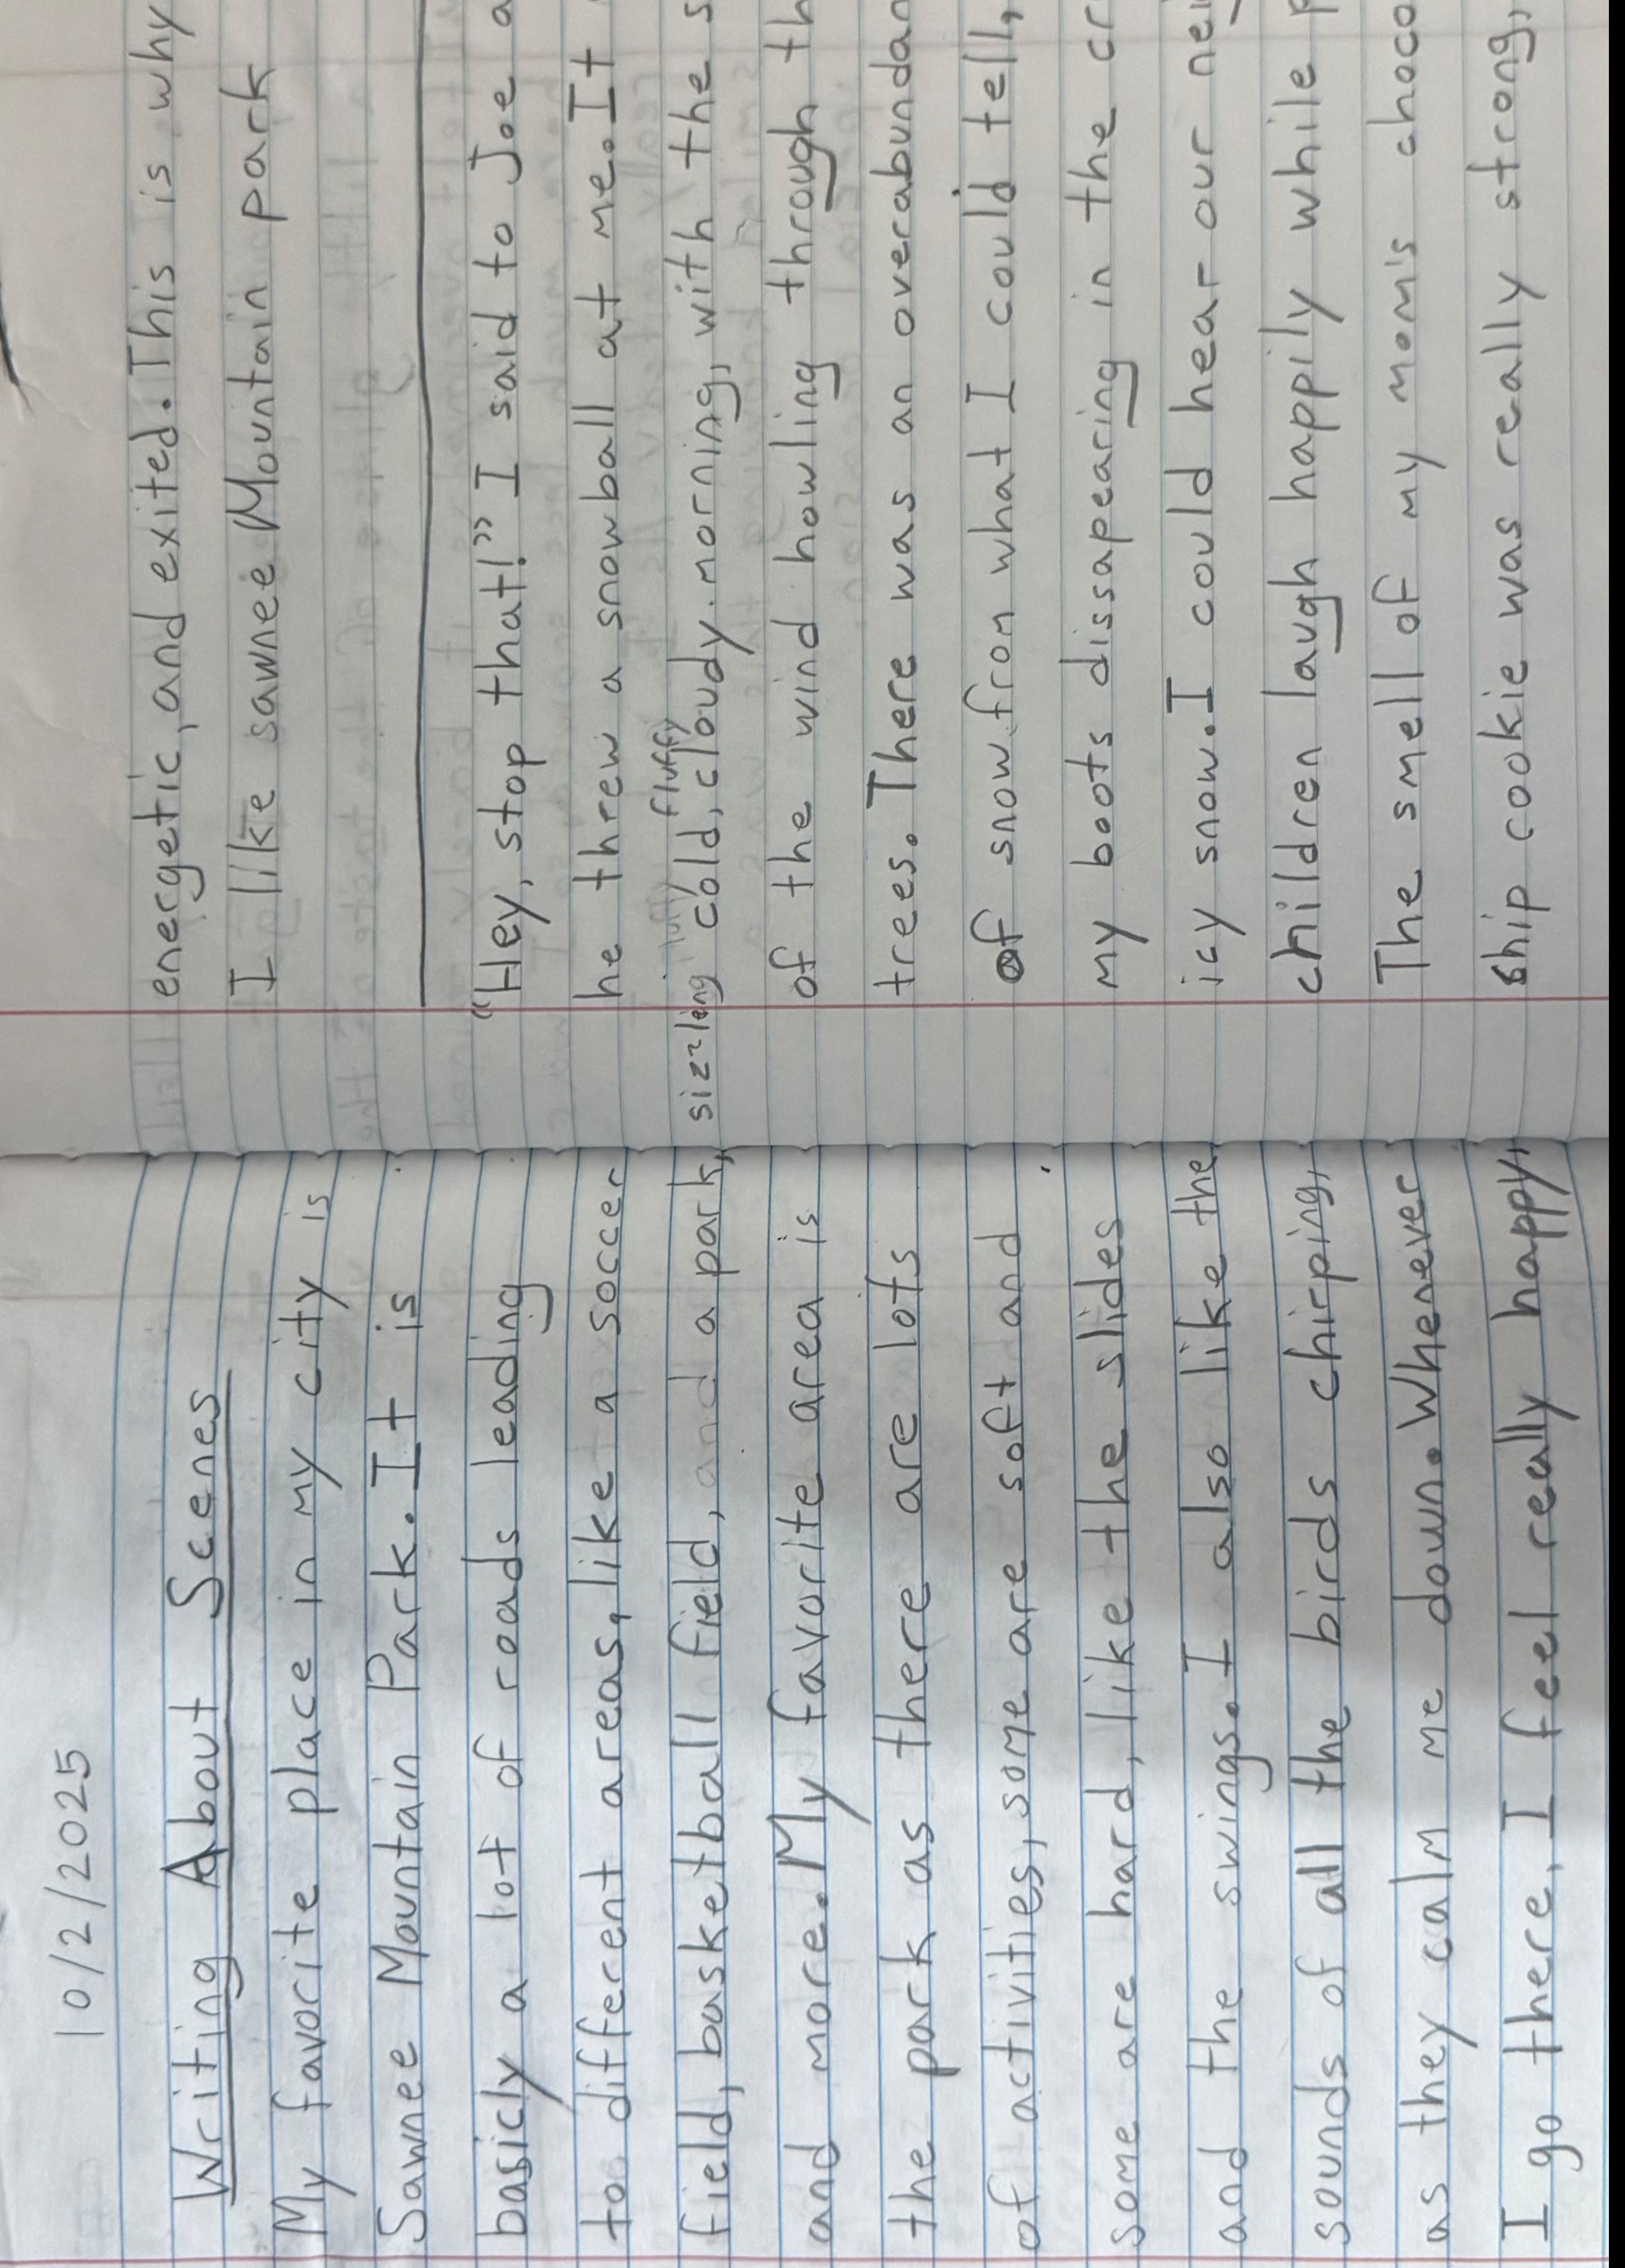 10/2/2025
Writing About Scenes
My favorite place in my city is
Sawnee Mountain Park. It is
basicly a lot of roads leading
to different areas, like a soccer
field, basketball field, and a park,
and more. My favorite area is
the park as there are lots
of activities, some are soft and
some are hard, like the slides
and the swings. I also like the
sounds of all the birds chirping,
as they calm me down. Whenever
I go there, I feel really happy,
energetic, and exited. This is why
I like sawnee Mountain park
"Hey, stop that!" I said to Joe a
he threw a snowball at me. It
fluffy
sizzling cold, cloudy morning, with the s
of the wind howling through th
trees. There was an overabundan
of snow from what I could tell,
my boots dissapearing in the cr
icy snow. I could hear our nei
children laugh happily while p
The smell of my mom's choco
ship cookie was really strong,